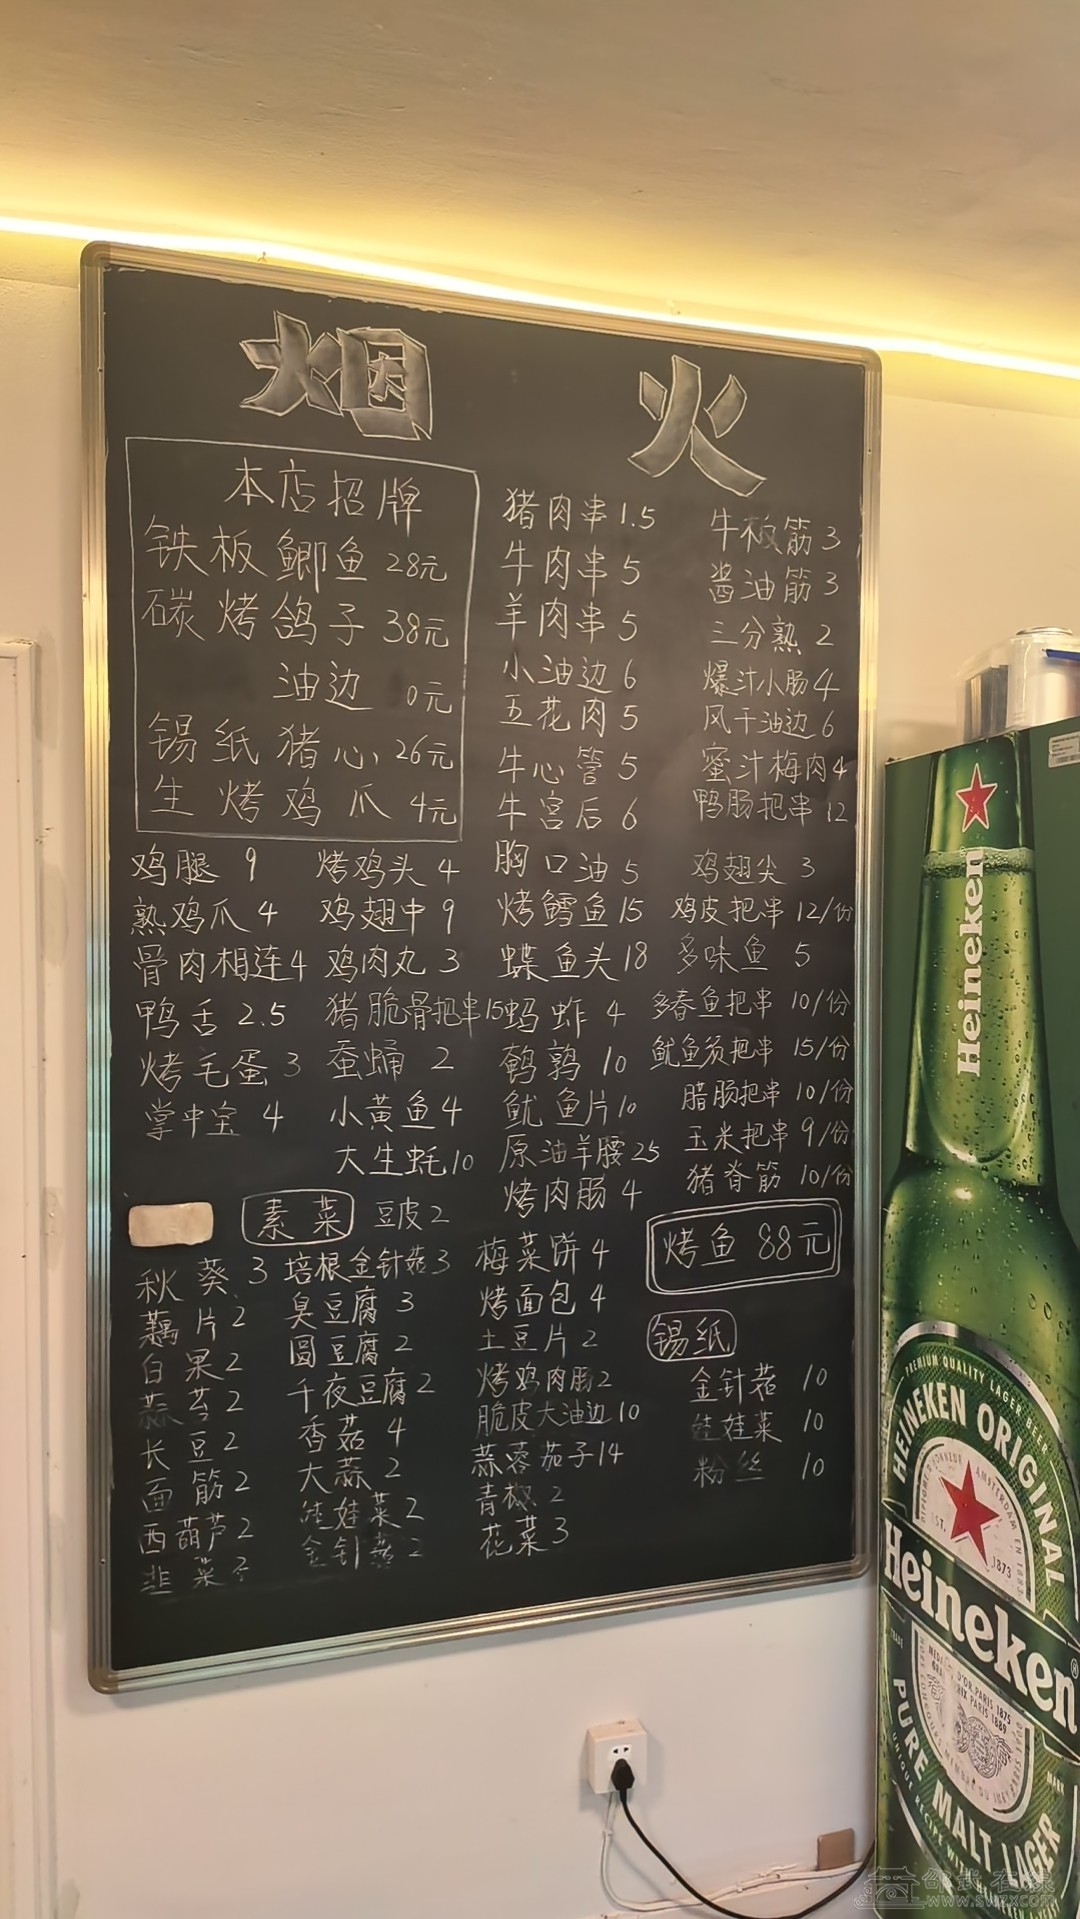 烟 火
本店招牌
铁板鲫鱼 28元
碳烤鸽子 38元
油边 0元
锡纸猪心 26元
生烤鸡爪 4元
鸡腿 9
熟鸡爪 4
骨肉相连 4
鸭舌 2.5
烤毛蛋 3
掌中宝 4
烤鸡头 4
鸡翅中 9
鸡肉丸 3
猪脆骨把串 15
蚕蛹 2
小黄鱼 4
大生蚝 10
猪肉串 1.5
牛肉串 5
羊肉串 5
小油边 6
五花肉 5
牛心管 5
牛宫后 6
胸口油 5
烤鳕鱼 15
蝶鱼头 18
蚂蚱 4
鹌鹑 10
鱿鱼片 10
原油羊腰 25
烤肉肠 4
牛板筋 3
酱油筋 3
三分熟 2
爆汁小肠 4
风干油边 6
蜜汁梅肉 4
鸭肠把串 12
鸡翅尖 3
鸡皮把串 12/份
多味鱼 5
多春鱼把串 10/份
鱿鱼须把串 15/份
腊肠把串 10/份
玉米把串 9/份
猪脊筋 10/份
烤鱼 88元
素菜
豆皮 2
秋葵 3
藕片 2
白果 2
蒜苔 2
长豆 2
面筋 2
西葫芦 2
韭菜
培根金针菇 3
臭豆腐 3
圆豆腐 2
千夜豆腐 2
香菇 4
大蒜 2
娃娃菜 2
金针菇 2
梅菜饼 4
烤面包 4
土豆片 2
烤鸡肉肠 2
脆皮大油边 10
蒜蓉茄子 14
青椒 2
花菜 3
锡纸
金针菇 10
娃娃菜 10
粉丝 10
Heineken
PREMIUM QUALITY LAGER BEER
HEINEKEN ORIGINAL
EST. 1873
Heineken
PURE MALT LAGER
邵武在线
www.swzx.com